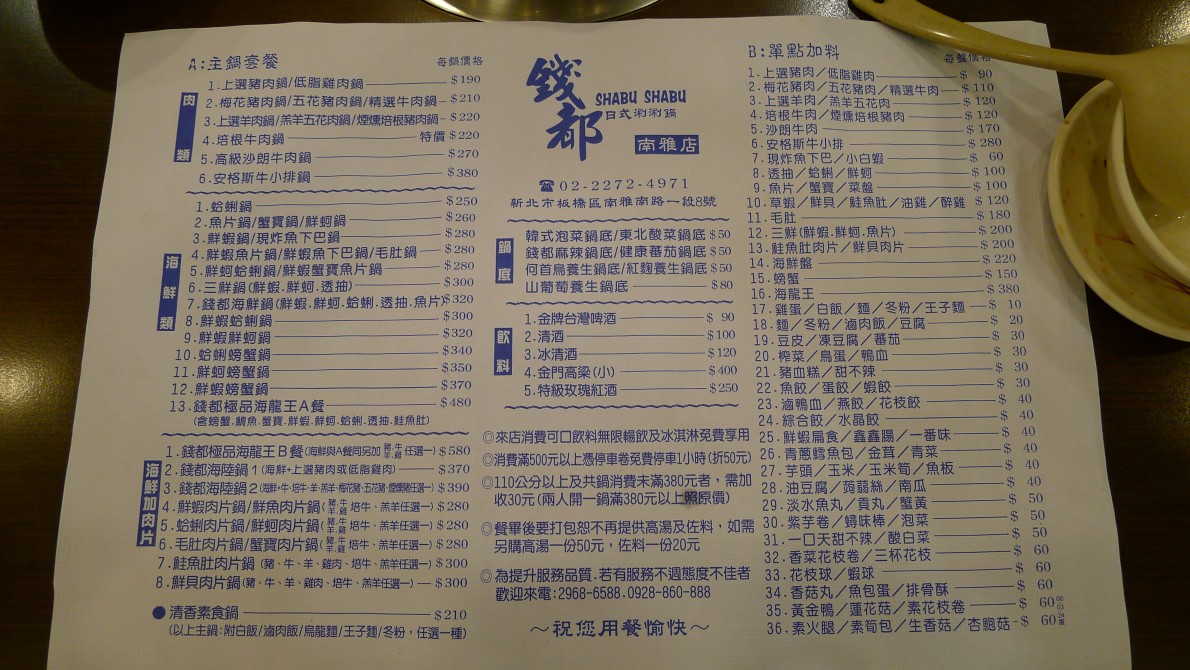 A:主鍋套餐 每鍋價格
肉類
1.上選豬肉鍋/低脂雞肉鍋 $190
2.梅花豬肉鍋/五花豬肉鍋/精選牛肉鍋 $210
3.上選羊肉鍋/羔羊五花肉鍋/煙燻培根豬肉鍋 $220
4.培根牛肉鍋 特價 $220
5.高級沙朗牛肉鍋 $270
6.安格斯牛小排鍋 $380
海鮮類
1.蛤蜊鍋 $250
2.魚片鍋/蟹寶鍋/鮮蚵鍋 $260
3.鮮蝦鍋/現炸魚下巴鍋 $280
4.鮮蝦魚片鍋/鮮蝦魚下巴鍋/毛肚鍋 $280
5.鮮蚵蛤蜊鍋/鮮蝦蟹寶魚片鍋 $280
6.三鮮鍋(鮮蝦.鮮蚵.透抽) $300
7.錢都海鮮鍋(鮮蝦.鮮蚵.蛤蜊.透抽.魚片) $320
8.鮮蝦蛤蜊鍋 $300
9.鮮蝦鮮蚵鍋 $320
10.蛤蜊螃蟹鍋 $340
11.鮮蚵螃蟹鍋 $350
12.鮮蝦螃蟹鍋 $370
13.錢都極品海龍王A餐 $480
(含螃蟹.鯛魚.蟹寶.鮮蝦.鮮蚵.蛤蜊.透抽.鮭魚肚)
海鮮加肉片
1.錢都極品海龍王B餐(海鮮與A餐同另加 豬.牛 羊.雞 任選一) $580
2.錢都海陸鍋1(海鮮+上選豬肉或低脂雞肉) $370
3.錢都海陸鍋2(海鮮+牛.培牛.羊.羔羊.梅花豬.五花豬.煙燻豬任選一) $390
4.鮮蝦肉片鍋/鮮魚肉片鍋(豬.牛 羊.雞 培牛、羔羊任選一) $280
5.蛤蜊肉片鍋/鮮蚵肉片鍋(豬.牛 羊.雞 培牛、羔羊任選一) $280
6.毛肚肉片鍋/蟹寶肉片鍋(豬.牛 羊.雞 培牛、羔羊任選一) $280
7.鮭魚肚肉片鍋(豬、牛、羊、雞肉、培牛、羔羊任選一) $300
8.鮮貝肉片鍋(豬、牛、羊、雞肉、培牛、羔羊任選一) $300
●清香素食鍋 $210
(以上主鍋:附白飯/滷肉飯/烏龍麵/王子麵/冬粉，任選一種)
錢都
SHABU SHABU
日式涮涮鍋
南雅店
☎02-2272-4971
新北市板橋區南雅南路一段8號
鍋底
韓式泡菜鍋底/東北酸菜鍋底 $50
錢都麻辣鍋底/健康蕃茄鍋底 $50
何首烏養生鍋底/紅麴養生鍋底 $50
山葡萄養生鍋底 $80
飲料
1.金牌台灣啤酒 $90
2.清酒 $100
3.冰清酒 $120
4.金門高梁(小) $400
5.特級玫瑰紅酒 $250
◎來店消費可口飲料無限暢飲及冰淇淋免費享用
◎消費滿500元以上憑停車卷免費停車1小時(折50元)
◎110公分以上及共鍋消費未滿380元者，需加
收30元(兩人開一鍋滿380元以上照原價)
◎餐畢後要打包恕不再提供高湯及佐料，如需
另購高湯一份50元，佐料一份20元
◎為提升服務品質.若有服務不週態度不佳者
歡迎來電:2968-6588.0928-860-888
～祝您用餐愉快～
B:單點加料 每盤價格
1.上選豬肉／低脂雞肉 $90
2.梅花豬肉／五花豬肉／精選牛肉 $110
3.上選羊肉／羔羊五花肉 $120
4.培根牛肉／煙燻培根豬肉 $120
5.沙朗牛肉 $170
6.安格斯牛小排 $280
7.現炸魚下巴／小白蝦 $60
8.透抽／蛤蜊／鮮蚵 $100
9.魚片／蟹寶／菜盤 $100
10.草蝦／鮮貝／鮭魚肚／油雞／醉雞 $120
11.毛肚 $180
12.三鮮(鮮蝦.鮮蚵.魚片) $200
13.鮭魚肚肉片／鮮貝肉片 $200
14.海鮮盤 $220
15.螃蟹 $150
16.海龍王 $380
17.雞蛋／白飯／麵／冬粉／王子麵 $10
18.麵／冬粉／滷肉飯／豆腐 $20
19.豆皮／凍豆腐／蕃茄 $30
20.榨菜／鳥蛋／鴨血 $30
21.豬血糕／甜不辣 $30
22.魚餃／蛋餃／蝦餃 $30
23.滷鴨血／燕餃／花枝餃 $40
24.綜合餃／水晶餃 $40
25.鮮蝦扁食／鑫鑫腸／一番味 $40
26.青蔥鱈魚包／金茸／青菜 $40
27.芋頭／玉米／玉米筍／魚板 $40
28.油豆腐／蒟蒻絲／南瓜 $40
29.淡水魚丸／貢丸／蟹黃 $50
30.紫芋卷／蟳味棒／泡菜 $50
31.一口天甜不辣／酸白菜 $50
32.香菜花枝卷／三杯花枝 $60
33.花枝球／蝦球 $60
34.香菇丸／魚包蛋／排骨酥 $60
35.黃金鴨／蓮花菇／素花枝卷 $60
36.素火腿／素筍包／生香菇／杏鮑菇 $60